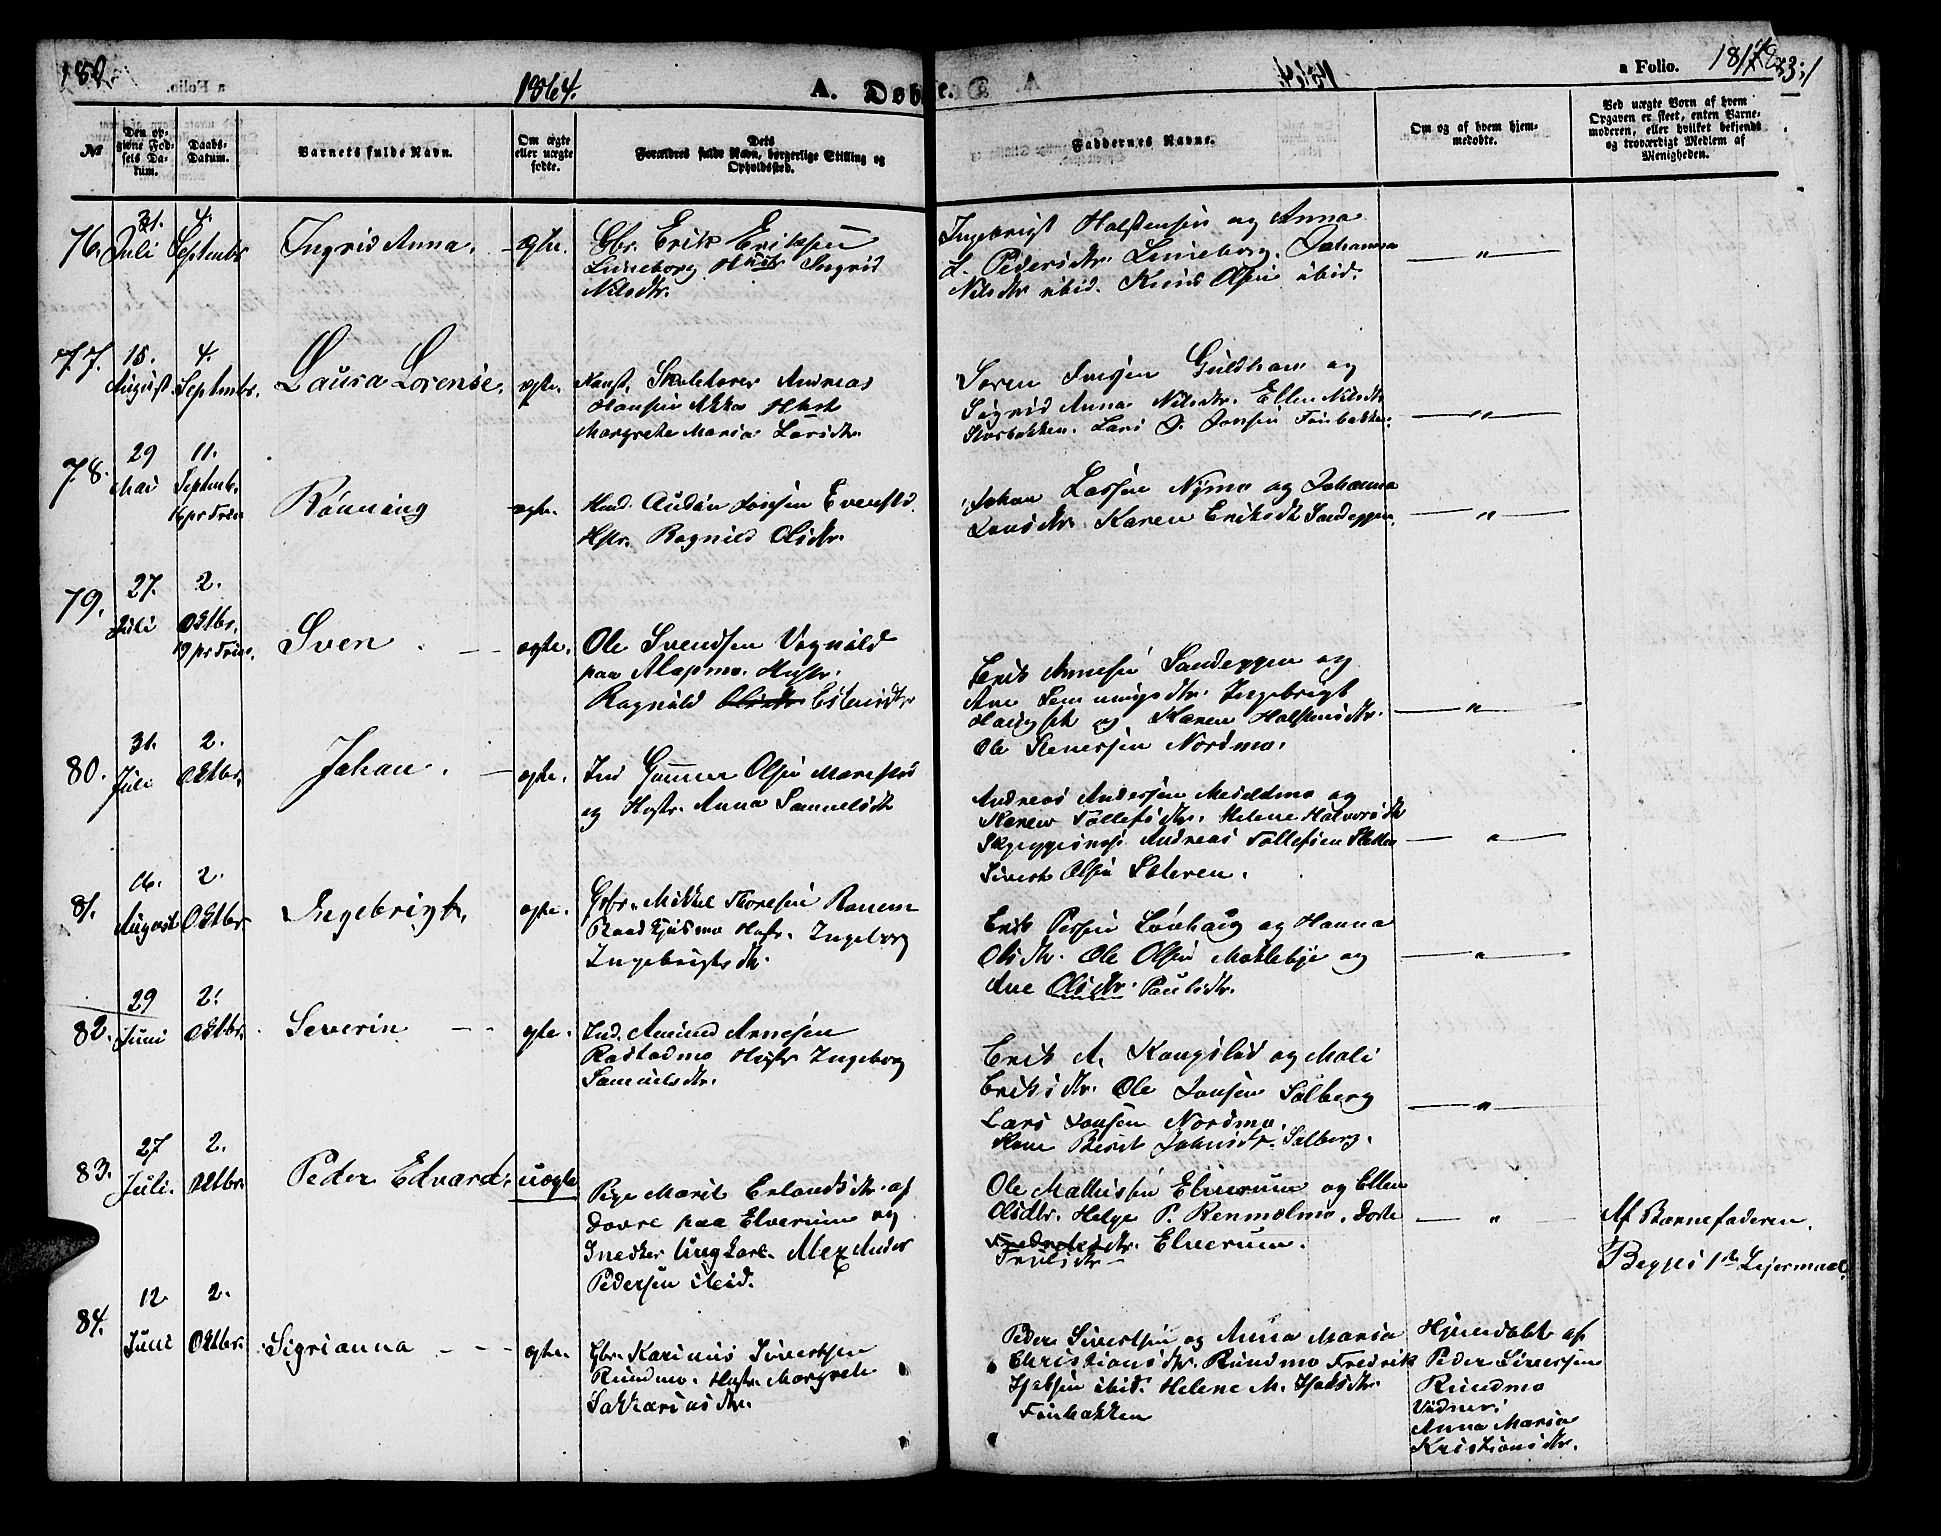 1864.
A. Døbte.
a Folio.
№
Den op-
givne Fød-
sels Da-
tum.
Daabs-
Datum.
Barnets fulde Navn.
Om ægte
eller uægte
fødte.
Dets
Forældres fulde Navn, borgerlige Stilling og
Opholdssted.
Faddernes Navne.
Om og af hvem hjem-
medøbt.
Ved uægte Børn af hvem
Opgaven er skeet, enten Barne-
moderen, eller hvilket bekjendt
og troværdigt Medlem af
Menigheden.
76.
31.
Juli
4.
Septembr
Ingrid Anna.
ægte.
Gbr. Erik Eriksen
Lüneborg Hustr Ingrid
Nilsdtr.
Ingebrigt Halstensen og Anna
L. Pedersdtr. Lüneborg. Johanna
Nilsdtr ibid. Knud Olsen ibid.
"
77.
15.
August
4.
Septembr.
Laura Lorense.
ægte.
Andreas
Hansen Akka Hust
Margrethe Maria Larsdtr.
Søren Guldham og
Sigrid Anna Nilsdtr. Ellen Nilsdtr
Larsdtr. Lars J. Jonsen Finbakken.
"
78.
29
Mai
11.
Septemb.
16 pr Trin
Rønnaug
ægte.
Audün Jonsen Evenstd.
Hstr. Ragnild Olsdtr.
Johan Lassen Nymo og Johanna
Larsdtr. Karen Eriksdtr Sandeggen.
"
79.
27.
Juli
2.
Oktbr.
19 pr Trin.
Sven
ægte.
Ole Svendsen Vognild
paa Alapmo. Hustr.
Ragnild Olsdtr Estensdtr
Erik Arnesen Sandeggen og
Ane Lemmingsdtr. Ingebrigt
Haugset og Karen Halstensdtr.
Ole Stenersen Nordmo.
"
80.
31.
Juli
2.
Oktbr.
Johan.
ægte.
Ind Gunner Olsen Moresletd
og Hustr. Anna Samuelsdtr
Andreas Andersen Moldmo og
Karen Tollefsdtr. Helene Halvorsdtr
Skjeggesnæs Andreas Tollefsen Sletten
Sivert Olsen Sateren.
"
81.
6.
August
2.
Oktbr.
Ingebrigt.
ægte.
Gbr. Mikkel Thoresen Ranum
Hustr. Ingeborg
Ingebrigtsdtr.
Erik Persen Løvhaug og Hanna
Olsdtr. Ole Olsen Moklebye og
Ane Olsdtr. Paulsdtr.
"
82.
29
Juni
2.
Oktbr.
Severin
ægte.
Ind. Amund Arnesen
Rostadmo Hustr Ingeborg
Samuelsdtr.
Erik A. Kongslid og Mali
Eriksdtr. Ole Jonsen Solberg
Lars Jonsen Nordmo.
Kone Berit Johnsdtr. Solberg.
"
83.
27
Juli.
2.
Oktbr.
Peder Edvard.
uægte
Pige Marit Erlandsdtr. af
Dovre paa Elverum og
Snedker Ungkarl. Alexander
Pedersen ibid.
Ole Mathisen Elverum og Ellen
Olsdtr. Helge P. Renmælmo. Dorte
Elverum.
"
Af Barnefaderen.
Begges 1ste Leiermaal.
84.
12
Juni
2.
Oktbr.
Sigrianna
ægte.
Gbr. Karinus Sivertsen
Rundmo. Hustr. Margrete
Sakkariasdtr.
Peder Sivertsen og Anna Maria
Christiansdtr. Rundmo Fredrik
ibid. Helene M.
Finbakken
Hjemdøbt af
Peder Sivertsen
Rundmo
Vidner:
Anna Maria
Kristiansdtr.